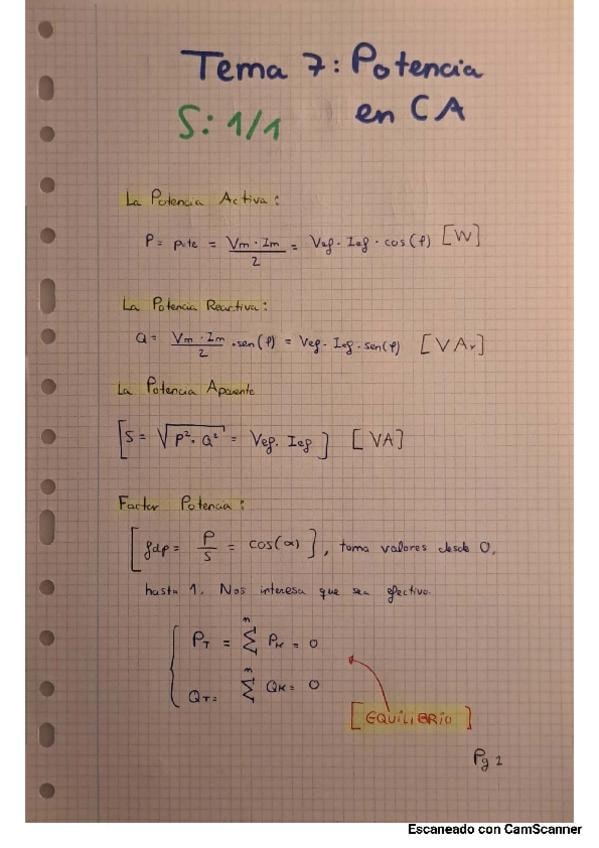 Tema 7: Potencia
S: 1/1 en CA
La Potencia Activa:
P = p.te = Vm · Im / 2 = Vef · Ief · cos(φ) [W]
La Potencia Reactiva:
Q = Vm · Im / 2 · sen(φ) = Vef · Ief · sen(φ) [VAr]
La Potencia Aparente
[S = √P² · Q² = Vef · Ief] [VA]
Factor Potencia:
[fdp = P / S = cos(α)], toma valores desde 0,
hasta 1. Nos interesa que sea efectivo.
P_T = n Σ P_K = 0
Q_T = n Σ Q_K = 0
[EQUILIBRIO]
Pg 1
Escaneado con CamScanner